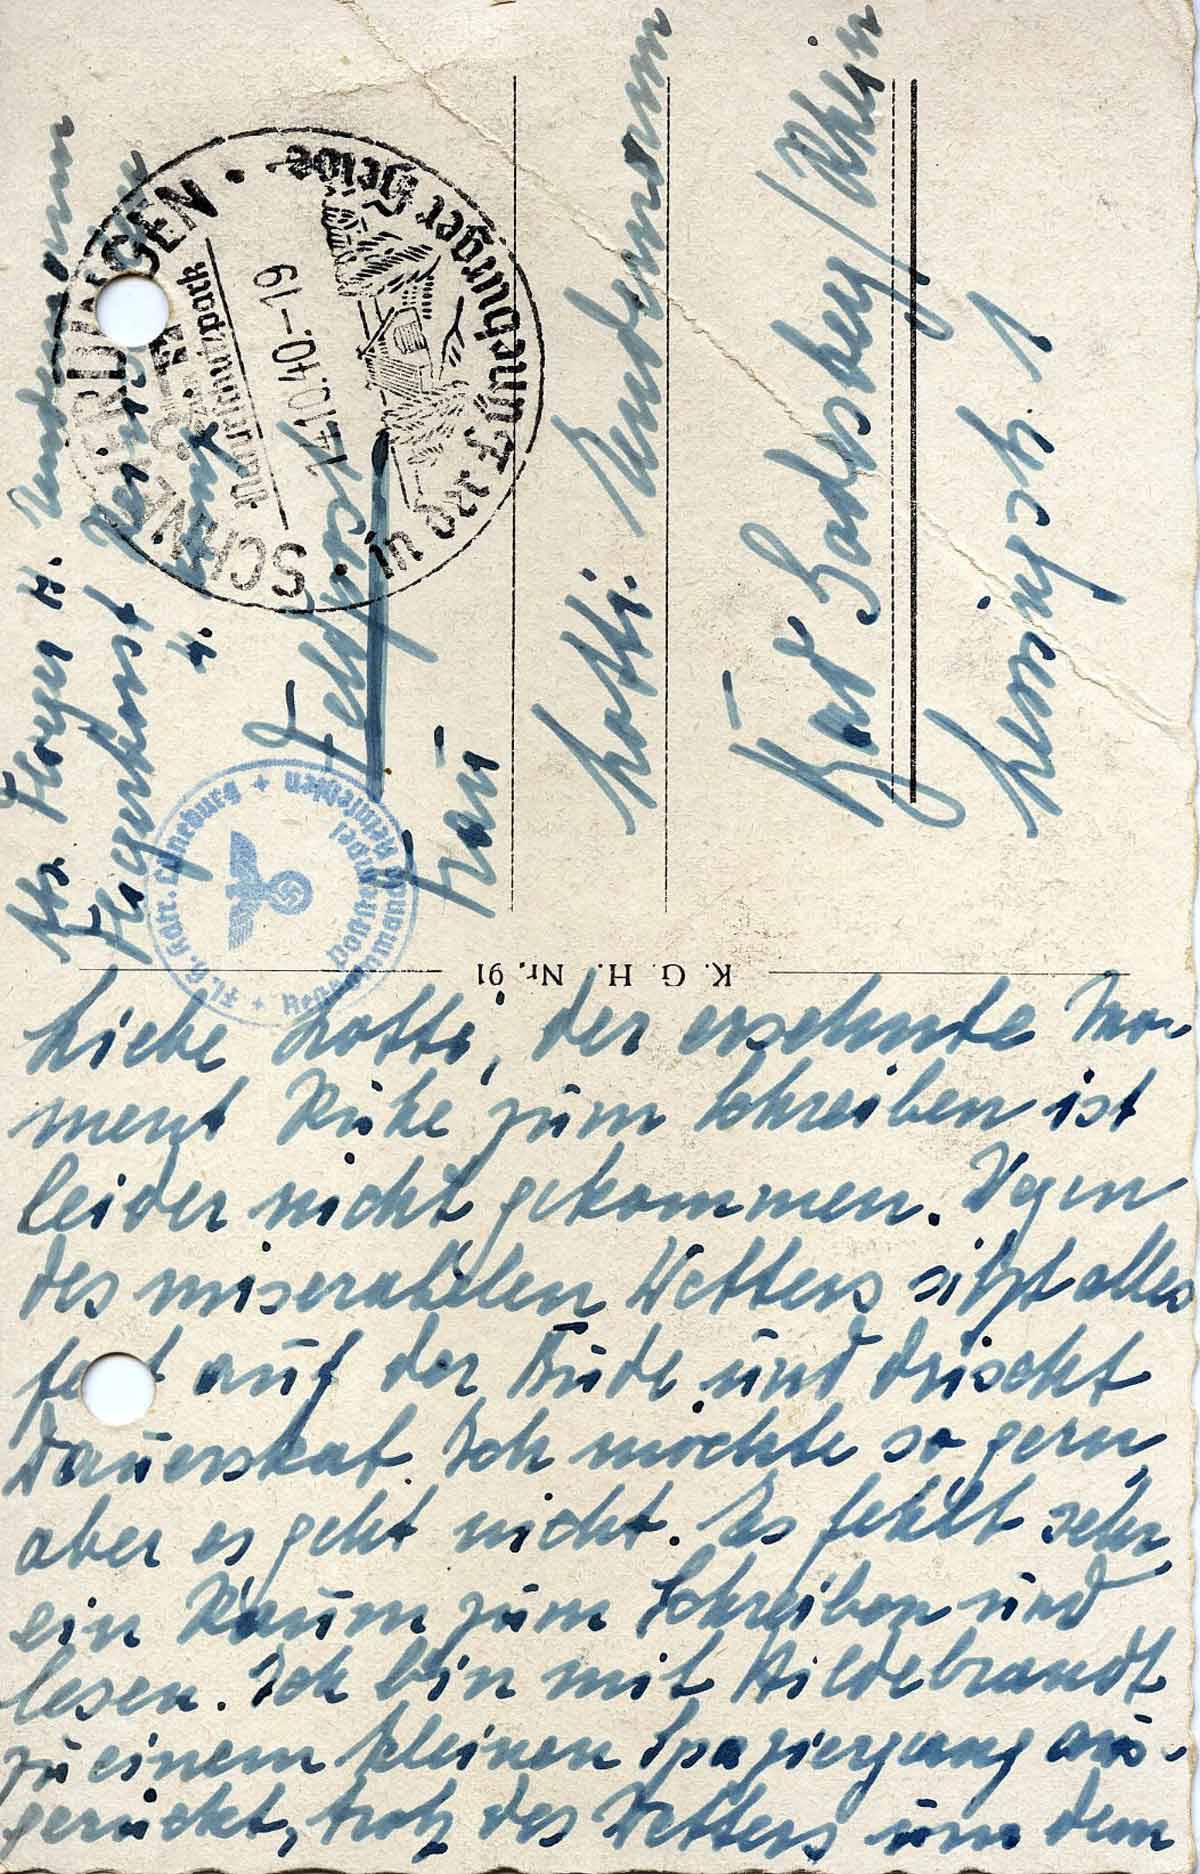 Abs. Flieger H. Lindemann
Fliegerhorst Reinsehlen
4.
SCHNEVERDINGEN
Naturschutzpark
14.10.40.-19
in der Lüneburger Heide
Feldpost
Fl. H. Kdtr. Lüneburg
Frau
Lotti Lindemann
Bad Godesberg/Rhein
Lessingstr. 1
K. G. H. Nr. 91
Liebe Lotti, der ersehnte Mo-
ment Ruhe zum Schreiben ist
leider nicht gekommen. Wegen
des miserablen Wetters sitzt alles
fest auf der Bude und drischt
Dauerskat. Ich möchte so gern,
aber es geht nicht. Es fehlt sehr
ein Raum zum Schreiben und
lesen. Ich bin mit Hildebrandt
zu einem kleinen Spaziergang aus-
gerückt, trotz des Wetters um dem